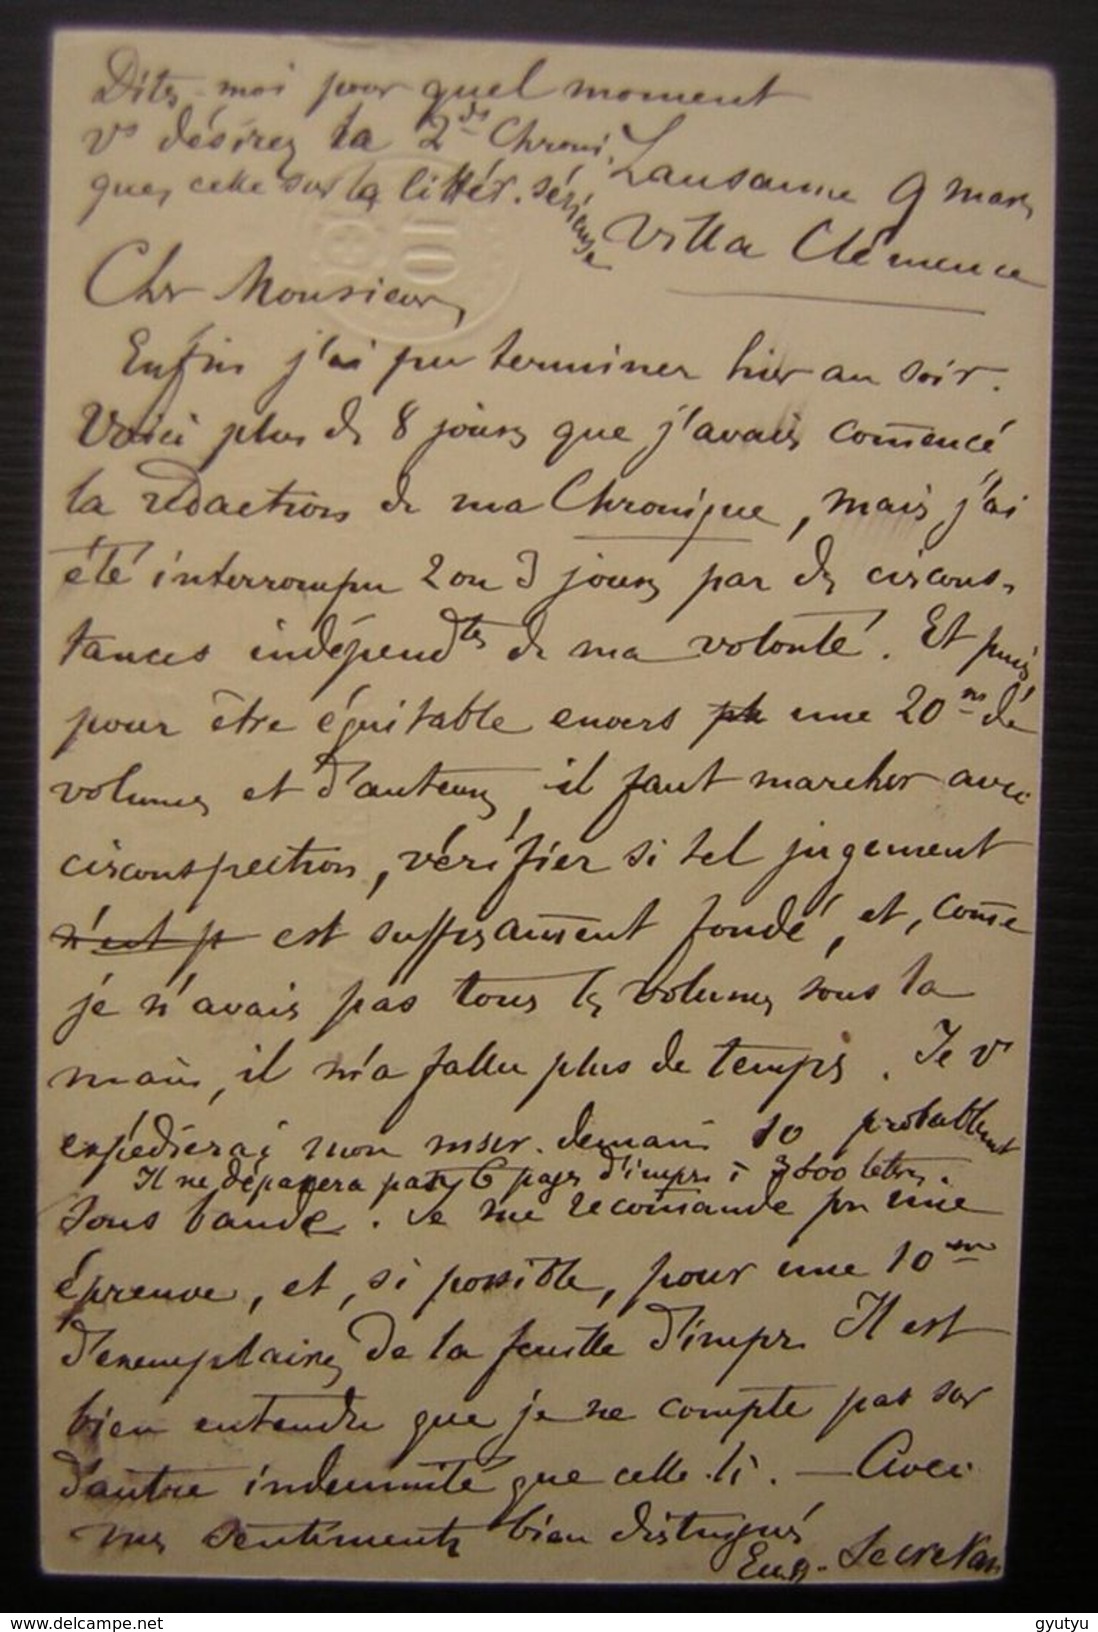 Dites-moi pour quel moment
vs désirez la 2de Chroni-
que, celle sur la littér. sérieuse
Lausanne 9 mars
Villa Clémence
Cher Monsieur,
Enfin j'ai pu terminer hier au soir.
Voici plus de 8 jours que j'avais com̄encé
la rédaction de ma Chronique, mais j'ai
été interrompu 2 ou 3 jours par des circons-
tances indépendtes de ma volonté. Et puis
pour être équitable envers une 20ne de
volumes et d'auteurs, il faut marcher avec
circonspection, vérifier si tel jugement
n'est p est suffisam̄ent fondé, et, com̄e
je n'avais pas tous les volumes sous la
main, il m'a fallu plus de temps. Je vs
expédierai mon mscr. demain 10 probablemt
Il ne dépassera pas 6 pages d'impr. à 3600 lettres.
sous bande. Je me recom̄ande pr une
épreuve, et, si possible, pour une 10ne
d'exemplaires de la feuille d'impr. Il est
bien entendu que je ne compte pas sur
d'autre indemnité que celle-là. — Avec
mes sentiments bien distingués
Eug. Secretan
gyutyu